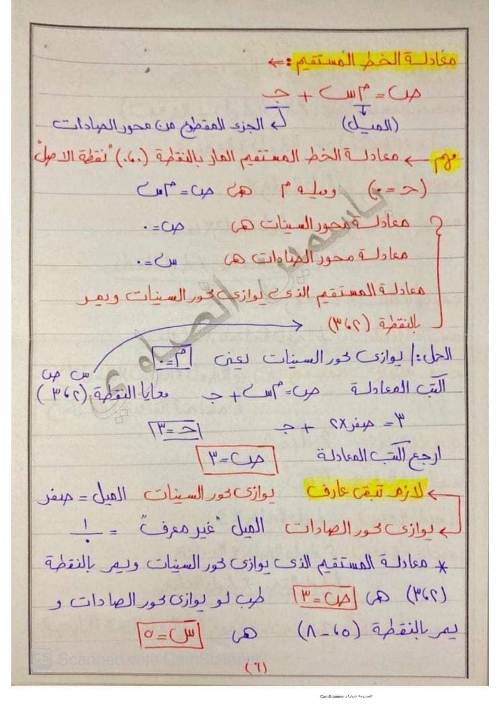 معادلة الخط المستقيم :- ←
ص = م س + جـ
(الميل) الجزء المقطوع من محور الصادات
مهم ← معادلة الخط المستقيم المار بالنقطة (٠،٠) "نقطة الاصل"
(جـ = ٠) وميله م هى ص = م س
معادلة محور السينات هى ص = ٠
معادلة محور الصادات هى س = ٠
معادلة المستقيم الذى يوازى محور السينات ويمر
بالنقطة (٢،٣)
الحل :/ يوازى محور السينات يعنى م = ٠
س ص
اكتب المعادلة ص = م س + جـ معايا النقطة (٢،٣)
٣ = صفر × ٢ + جـ جـ = ٣
ارجع اكتب المعادلة ص = ٣
لازم تبقى عارف يوازى محور السينات الميل = صفر
يوازى محور الصادات الميل "غير معرف" = ١/٠
* معادلة المستقيم الذى يوازى محور السينات ويمر بالنقطة
(٢،٣) هى ص = ٣ طب لو يوازى محور الصادات و
يمر بالنقطة (٥،-٨) هى س = ٥
(٦)
ياسمين الصاوي
CS Scanned with CamScanner